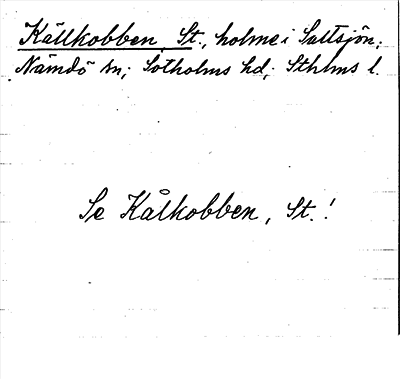 Källkobben, St., holme i Saltsjön;
Nämdö sn; Sotholms hd; Sthlms l.
Se Kålkobben, St.!